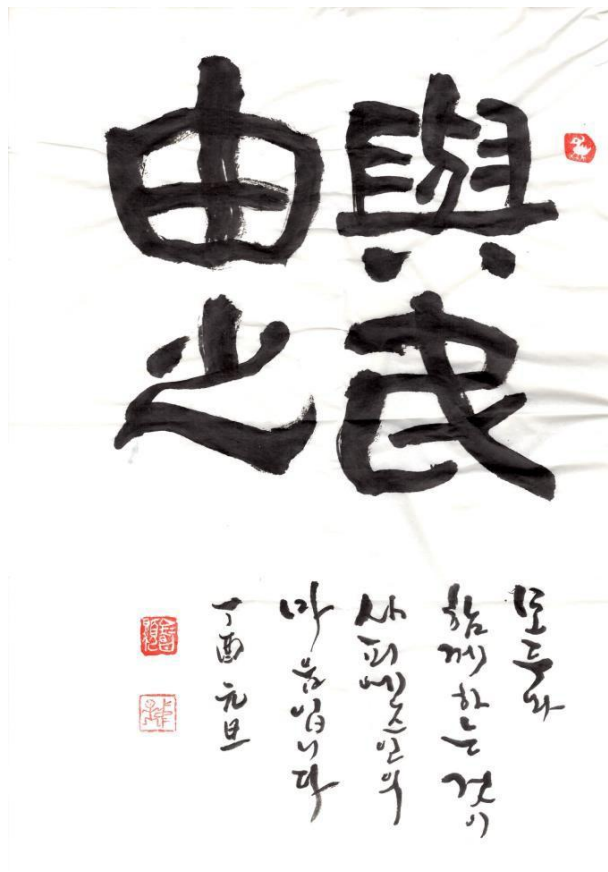 與民
由之
모두와
함께하는 것이
사피엔스인의
마음입니다
丁酉 元旦